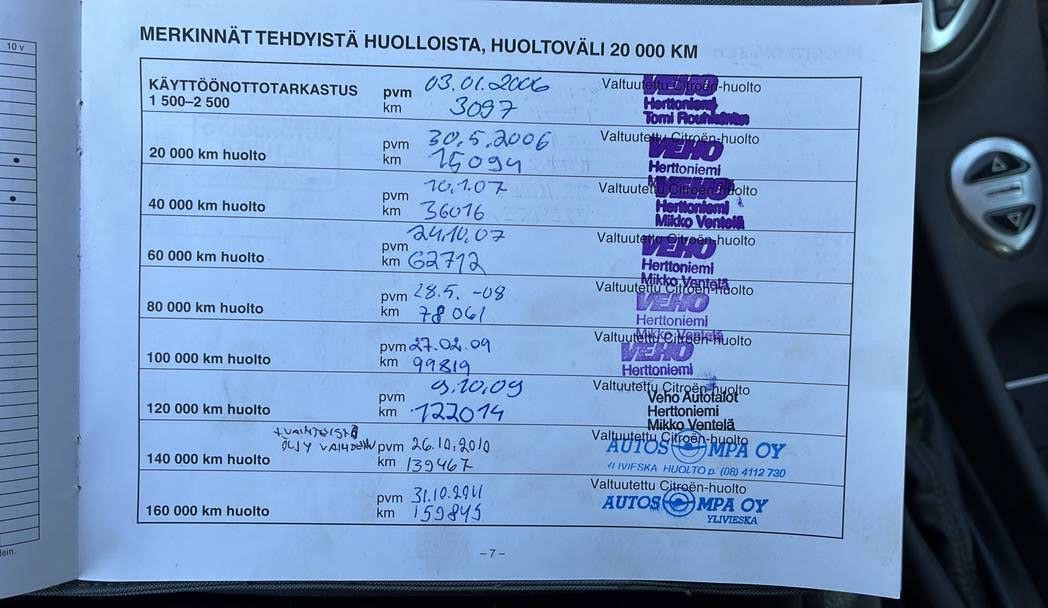 10 v
MERKINNÄT TEHDYISTÄ HUOLLOISTA, HUOLTOVÄLI 20 000 KM
KÄYTTÖÖNOTTOTARKASTUS
1 500–2 500
pvm 03.01.2006
km 3097
Valtuutettu Citroën-huolto
VEHO
Herttoniemi
Tomi
20 000 km huolto
pvm 30.5.2006
km 15094
Valtuutettu Citroën-huolto
VEHO
Herttoniemi
40 000 km huolto
pvm 10.1.07
km 36016
Valtuutettu Citroën-huolto
VEHO
Herttoniemi
Mikko Ventelä
60 000 km huolto
pvm 24.10.07
km 62712
Valtuutettu Citroën-huolto
VEHO
Herttoniemi
Mikko Ventelä
80 000 km huolto
pvm 28.5. -08
km 78061
Valtuutettu Citroën-huolto
VEHO
Herttoniemi
Mikko Ventelä
100 000 km huolto
pvm 27.02.09
km 99819
Valtuutettu Citroën-huolto
VEHO
Herttoniemi
120 000 km huolto
pvm 9.10.09
km 122014
Valtuutettu Citroën-huolto
Veho Autotalot
Herttoniemi
Mikko Ventelä
ÖLJY
140 000 km huolto
pvm 26.10.2010
km 139467
Valtuutettu Citroën-huolto
AUTOS MPA OY
YLIVIESKA HUOLTO p. (08) 4112 730
160 000 km huolto
pvm 31.10.2011
km 159845
Valtuutettu Citroën-huolto
AUTOS MPA OY
YLIVIESKA
– 7 –